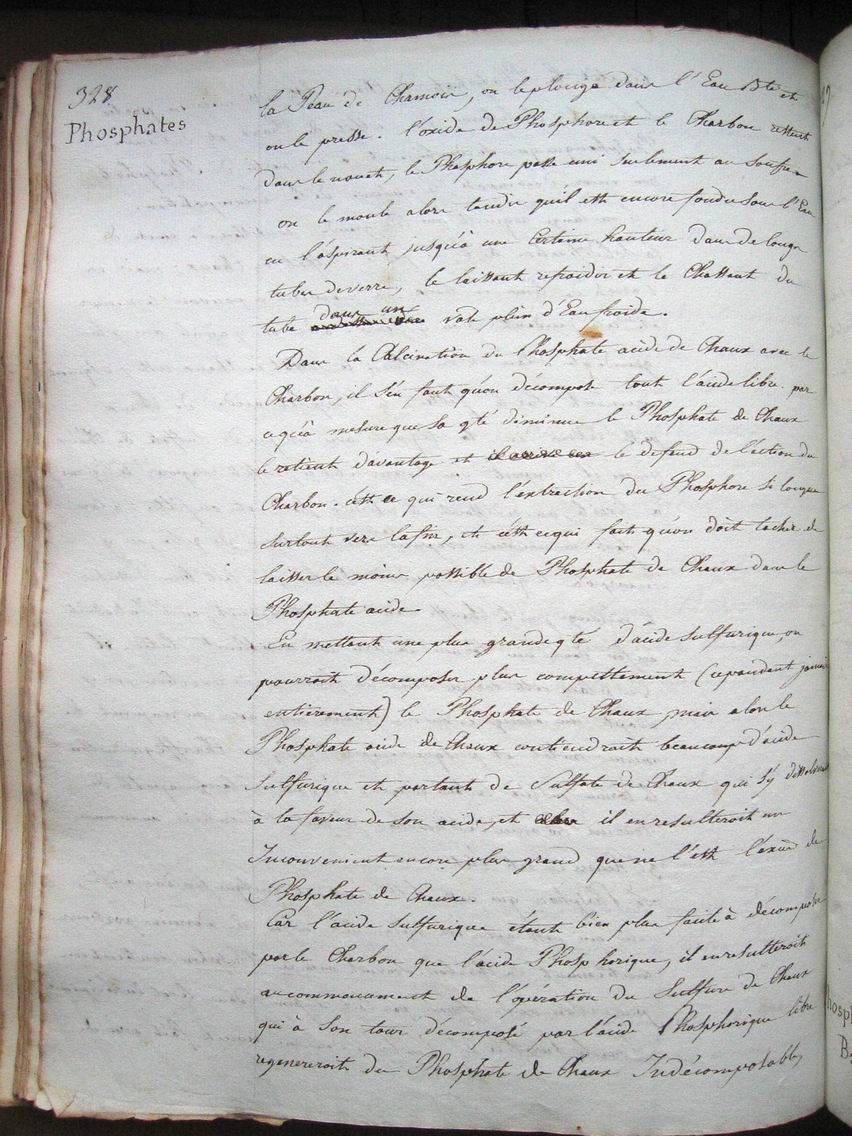 328
Phosphates
la Peau de Chamois, on le plonge dans l'Eau Bte et
on le presse. l'oxide de Phosphore et le Charbon restent
dans le nouet, le Phosphore passe uni seulement au soufre
on le moule alors tandis qu'il est encore fondu sous l'Eau
en l'aspirant jusqu'à une certaine hauteur dans de longs
tubes de verre, le laissant refroidir et le chassant du
tube dans un vase plein d'Eau froide.
Dans la Calcination du Phosphate acide de Chaux avec le
Charbon, il s'en faut qu'on décompose tout l'acide libre par
ce qu'à mesure que sa qté diminue le Phosphate de Chaux
le retient davantage et le defend de l'action du
Charbon. c'est ce qui rend l'extraction du Phosphore si longue
surtout vers la fin, et c'est ce qui fait qu'on doit tacher de
laisser le moins possible de Phosphate de Chaux dans le
Phosphate acide
En mettant une plus grande qté d'acide sulfurique on
pourroit décomposer plus complettement (cependant jamais
entièrement) le Phosphate de Chaux, mais alors le
Phosphate acide de Chaux contiendroit beaucoup d'acide
Sulfurique et partant de Sulfate de Chaux qui s'y dissolveroit
à la faveur de son acide, et il en resulteroit un
Inconvenient encore plus grand que ne l'est l'excès de
Phosphate de Chaux.
Car l'acide sulfurique étant bien plus facile à décomposer
par le Charbon que l'acide Phosphorique, il en resulteroit
au commencement de l'opération du Sulfure de Chaux
qui à son tour décomposé par l'acide Phosphorique libre
regenereroit du Phosphate de Chaux Indécomposable,